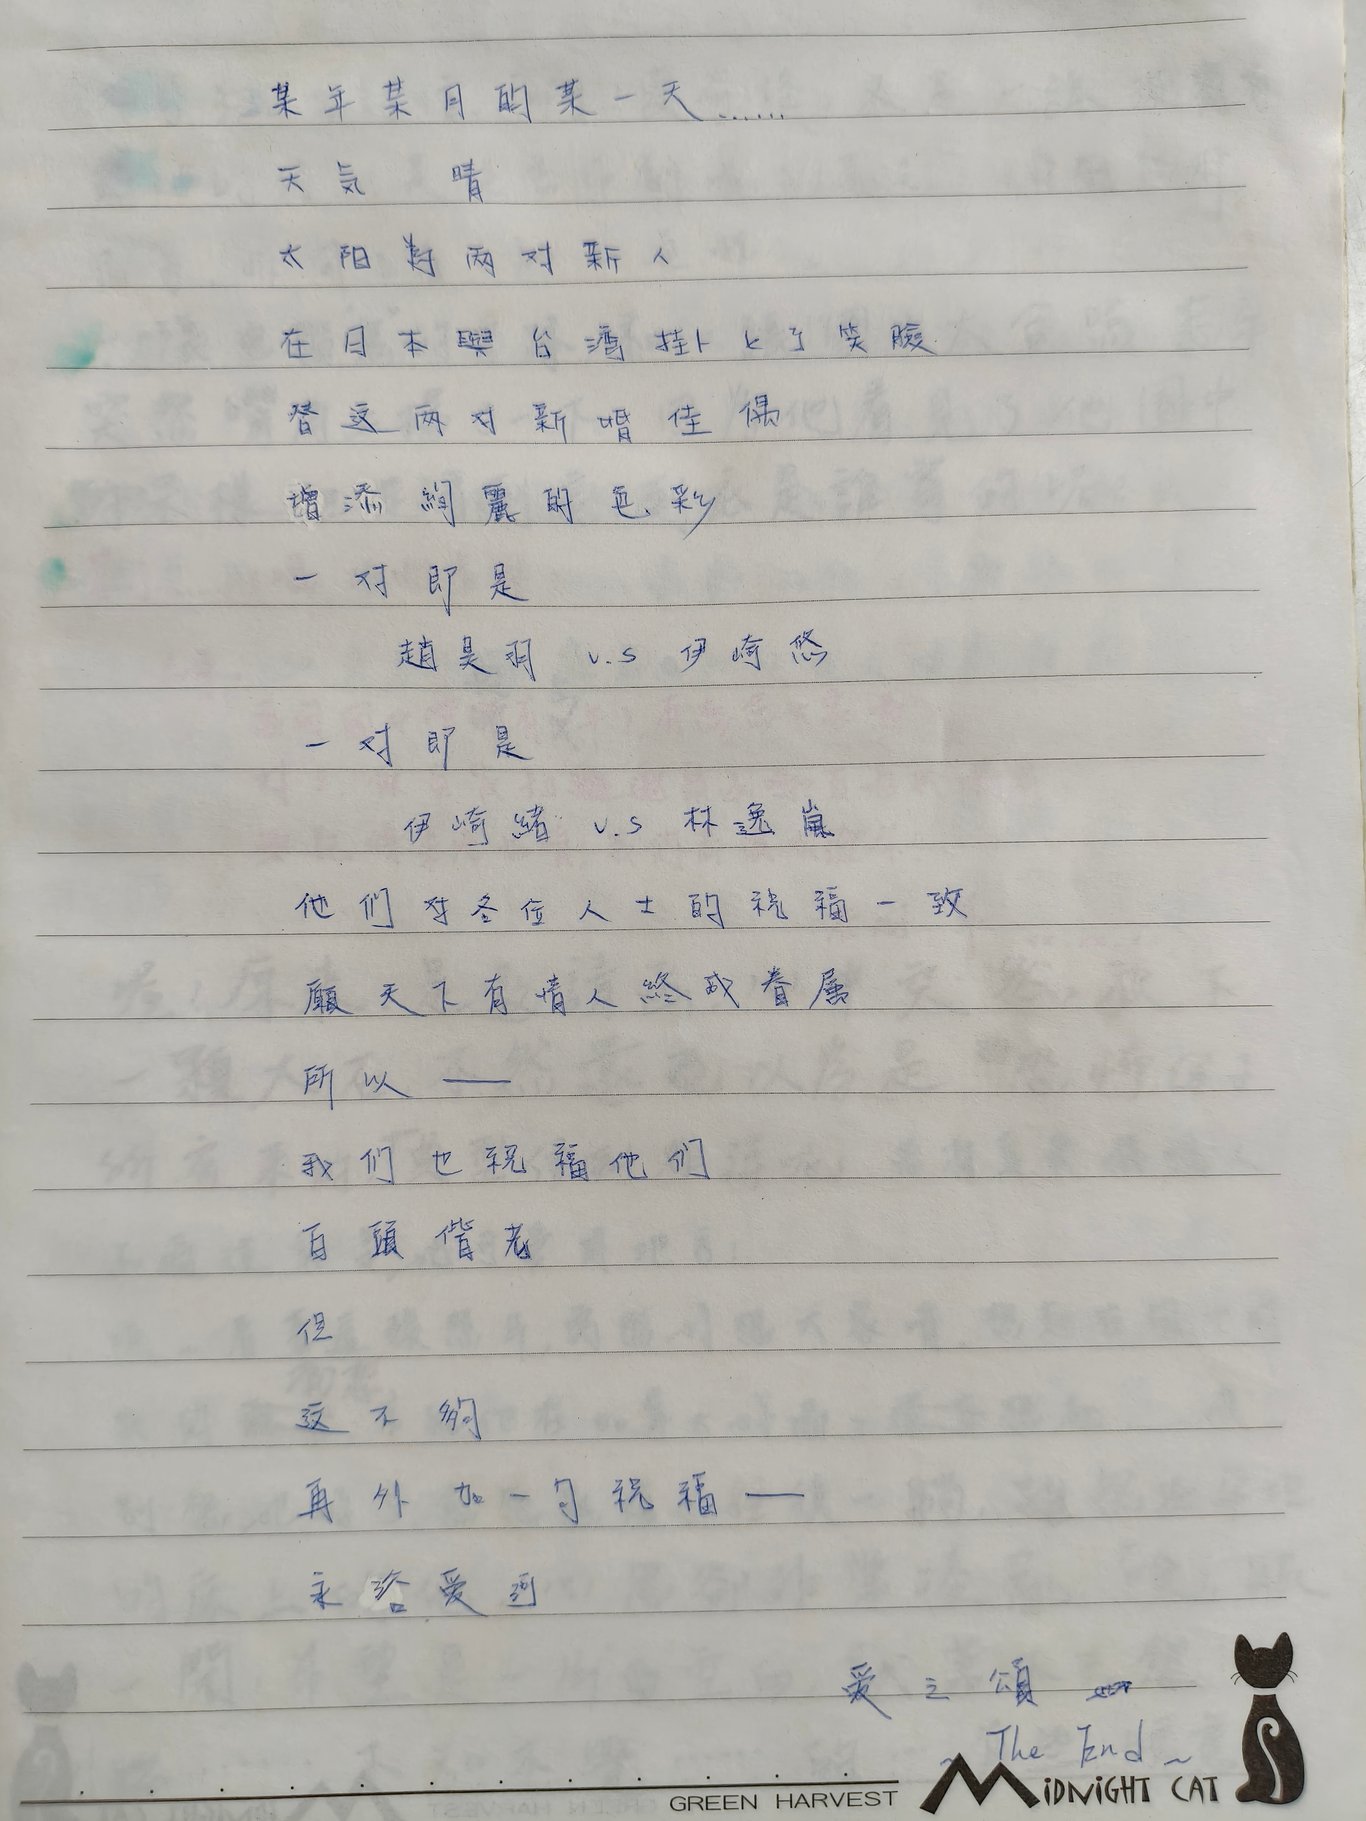 某年某月的某一天......
天気 晴
太阳為两对新人
在日本與台灣挂上了笑臉
替这两对新婚佳偶
增添絢麗的色彩
一对即是
趙昊羽 v.s 伊崎悠
一对即是
伊崎緒 v.s 林逸嵐
他们对各位人士的祝福一致
願天下有情人終成眷属
所以——
我们也祝福他们
百頭偕老
但
这不夠
再外加一句祝福——
永浴愛河
愛之頌
~ The End ~
GREEN HARVEST MIDNIGHT CAT